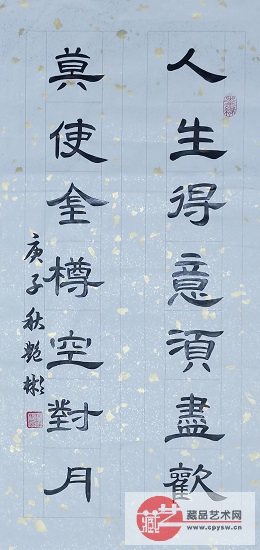 人生得意須盡歡
莫使金樽空對月
庚子秋艷彬
藏艺
藏品艺术网
www.cpysw.cn